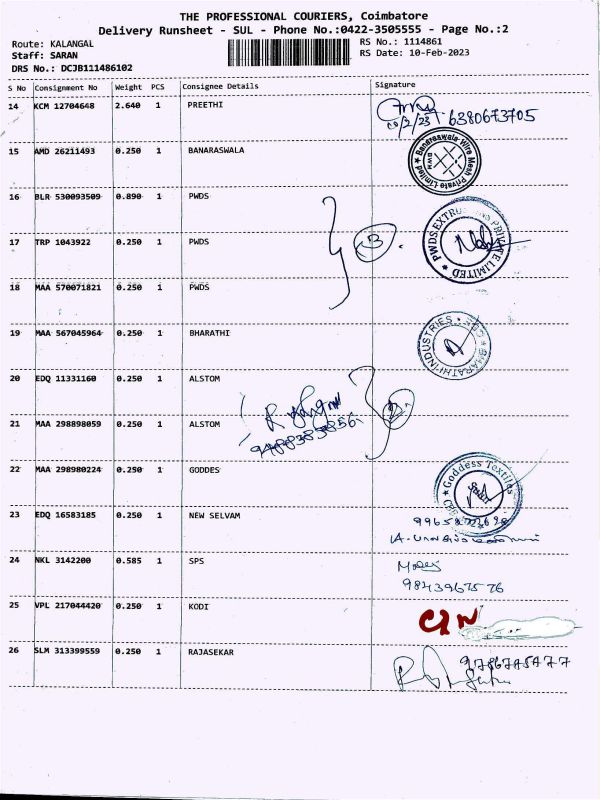 THE PROFESSIONAL COURIERS, Coimbatore
Delivery Runsheet - SUL - Phone No.:0422-3505555 - Page No.:2
Route: KALANGAL
RS No.: 1114861
Staff: SARAN
RS Date: 10-Feb-2023
DRS No.: DCJB111486102
S No Consignment No Weight PCS Consignee Details Signature
14 KCM 12704648 2.640 1 PREETHI
10/2/23 6380673705
15 AMD 26211493 0.250 1 BANARASWALA
Banaraswala Wire Mesh Private Limited
BWM
16 BLR 530093509 0.890 1 PWDS
17 TRP 1043922 0.250 1 PWDS
3
PWDS EXTRUSIONS PRIVATE LIMITED
18 MAA 570071821 0.250 1 PWDS
19 MAA 567045964 0.250 1 BHARATHI
BHARATHI INDUSTRIES
20 EDQ 11331160 0.250 1 ALSTOM
2
21 MAA 298898059 0.250 1 ALSTOM
22 MAA 298980224 0.250 1 GODDES
Goddess Textiles
CBE
23 EDQ 16583185 0.250 1 NEW SELVAM
24 NKL 3142200 0.585 1 SPS
9843967576
25 VPL 217044420 0.250 1 KODI
26 SLM 313399559 0.250 1 RAJASEKAR
9786745477